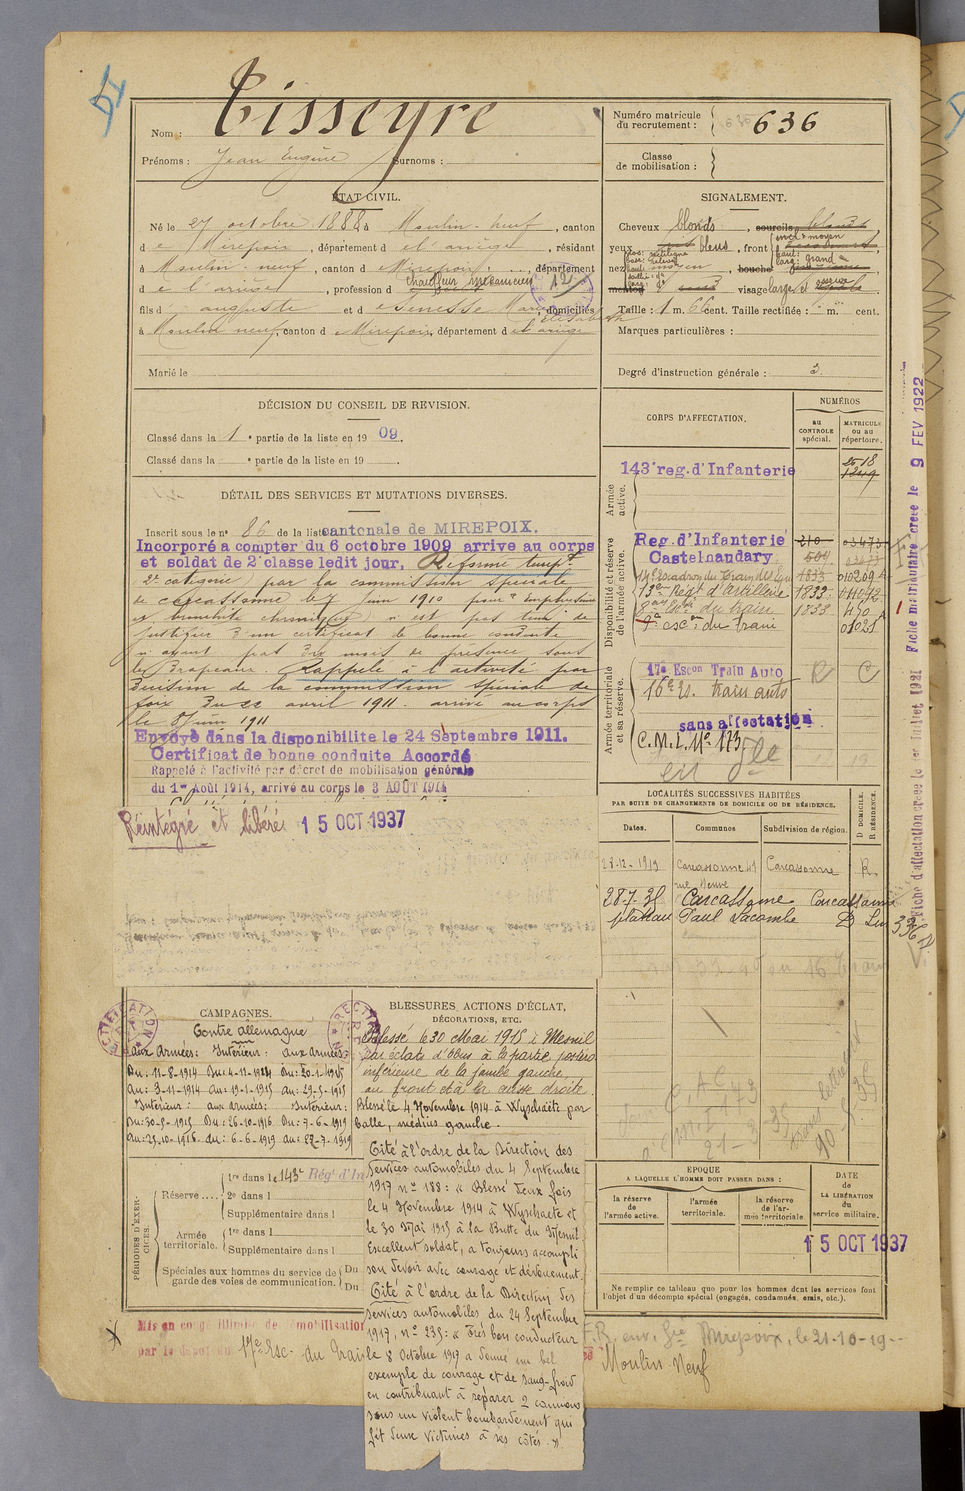 Nom : Tisseyre
Prénoms : Jean Eugène Surnoms :
Numéro matricule du recrutement : 636
Classe de mobilisation :
ÉTAT CIVIL.
Né le 27 octobre 1888 à Moulin-neuf, canton
de Mirepoix, département de l'ariège, résidant
à Moulin-neuf, canton de Mirepoix, département
de l'ariège, profession de chauffeur mécanicien
fils d auguste et de Senesse Marie Elisabeth domiciliés
à Moulin neuf, canton de Mirepoix, département de l'ariège
Marié le
SIGNALEMENT.
Cheveux blonds, sourcils blonds
yeux bleus, front incl: moyen haut: larg: grand
nez moyen, bouche
menton visage large et
Taille : 1 m. 66 cent. Taille rectifiée : m. cent.
Marques particulières :
Degré d'instruction générale : 3
DÉCISION DU CONSEIL DE REVISION.
Classé dans la 1e partie de la liste en 1909.
Classé dans la e partie de la liste en 19
DÉTAIL DES SERVICES ET MUTATIONS DIVERSES.
Inscrit sous le n° 86 de la liste cantonale de MIREPOIX.
Incorporé a compter du 6 octobre 1909 arrive au corps
et soldat de 2e classe ledit jour. Réformé tempre
2e catégorie par la commission spéciale
de carcassonne le 7 juin 1910 pour emphysème
et bronchite chronique n'est pas lieu de
justifier d'un certificat de bonne conduite
n'ayant pas dix mois de présence sous
les drapeaux. Rappelé à l'activité par
décision de la commission spéciale de
foix du 22 avril 1911. arrivé au corps
le 8 juin 1911
Envoyé dans la disponibilite le 24 Septembre 1911.
Certificat de bonne conduite Accordé
Rappelé à l'activité par décret de mobilisation générale
du 1er Août 1914, arrivé au corps le 3 AOÛT 1914
Réintégré et libéré 15 OCT 1937
CORPS D'AFFECTATION.
NUMÉROS
au CONTROLE spécial.
MATRICULE ou au répertoire.
Armée active.
143e reg. d'Infanterie
Disponibilité et réserve de l'armée active.
Reg. d'Infanterie 210 03473
Castelnaudary 504
14e Escadron du Train des Equ 1833 010209
13e Régt d'artillerie 1833
8e Esc du train 1833 450
9e esc on du train 01021
Armée territoriale et sa réserve.
17e Escon Train Auto R C
16e Es. train auto
sans affectation
C.M.I. No 173
Fiche d'affectation créée le 1er Juillet 1921 Fiche matriculaire créée le 9 FEV 1922
LOCALITÉS SUCCESSIVES HABITÉES
PAR SUITE DE CHANGEMENTS DE DOMICILE OU DE RÉSIDENCE.
Dates. Communes Subdivision de région. D DOMICILE. R RÉSIDENCE.
28-12-1919 Carcassonne 41 rue Neuve Carcassonne R.
28.7.31 Carcassonne Carcassonne
plateau Paul Lacombe D
CAMPAGNES.
Contre allemagne
aux Armées: Intérieur: aux armées:
Du: 11-8-1914 Du: 4-11-1914 Du: 20-1-1915
au: 3-11-1914 au: 19-1-1915 au: 29-5-1915
Intérieur: aux armées: Intérieur:
Du: 30-5-1915 Du: 26-10-1916 Du: 7-6-1919
au: 25-10-1916 du: 6-6-1919 au: 27-7-1919
RECTIFICATION
BLESSURES, ACTIONS D'ÉCLAT,
DÉCORATIONS, ETC.
Blessé le 30 Mai 1915 à Mesnil
par éclats d'obus à la partie postéro
inférieure de la jambe gauche,
au front et à la cuisse droite.
Blessé le 4 Novembre 1914 à Wyschaëte par
balle, médius gauche.
Cité à l'ordre de la Direction des
Services automobiles du 4 Septembre
1917 no 188: « Blessé deux fois
le 4 Novembre 1914 à Wyschaete et
le 30 Mai 1915 à la Butte du Mesnil
Excellent soldat, a toujours accompli
son devoir avec courage et dévouement.
Cité à l'ordre de la Direction des
services automobiles du 24 Septembre
1917, no 235: « Très bon conducteur
le 8 Octobre 1917 a donné un bel
exemple de courage et de sang-froid
en contribuant à réparer 2 camions
sous un violent bombardement qui
fit deux victimes à ses côtés. »
PÉRIODES D'EXERCICES.
Réserve .... 1re dans le 143e Régt d'In
2e dans l
Supplémentaire dans l
Armée territoriale. 1re dans l
Supplémentaire dans l
Spéciales aux hommes du service de garde des voies de communication. Du
Du
EPOQUE
A LAQUELLE L'HOMME DOIT PASSER DANS :
la réserve de l'armée active.
l'armée territoriale.
la réserve de l'armée territoriale
DATE de LA LIBÉRATION du service militaire.
15 OCT 1937
Ne remplir ce tableau que pour les hommes dont les services font
l'objet d'un décompte spécial (engagés, condamnés, omis, etc.).
Mis en congé illimité de démobilisation
par le dépôt du 17e Esc. du Train
Mirepoix, le 21-10-19
Moulin Neuf